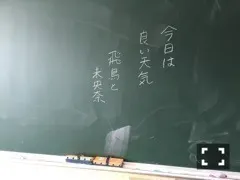 今日は
良い天気
飛鳥と
未央奈